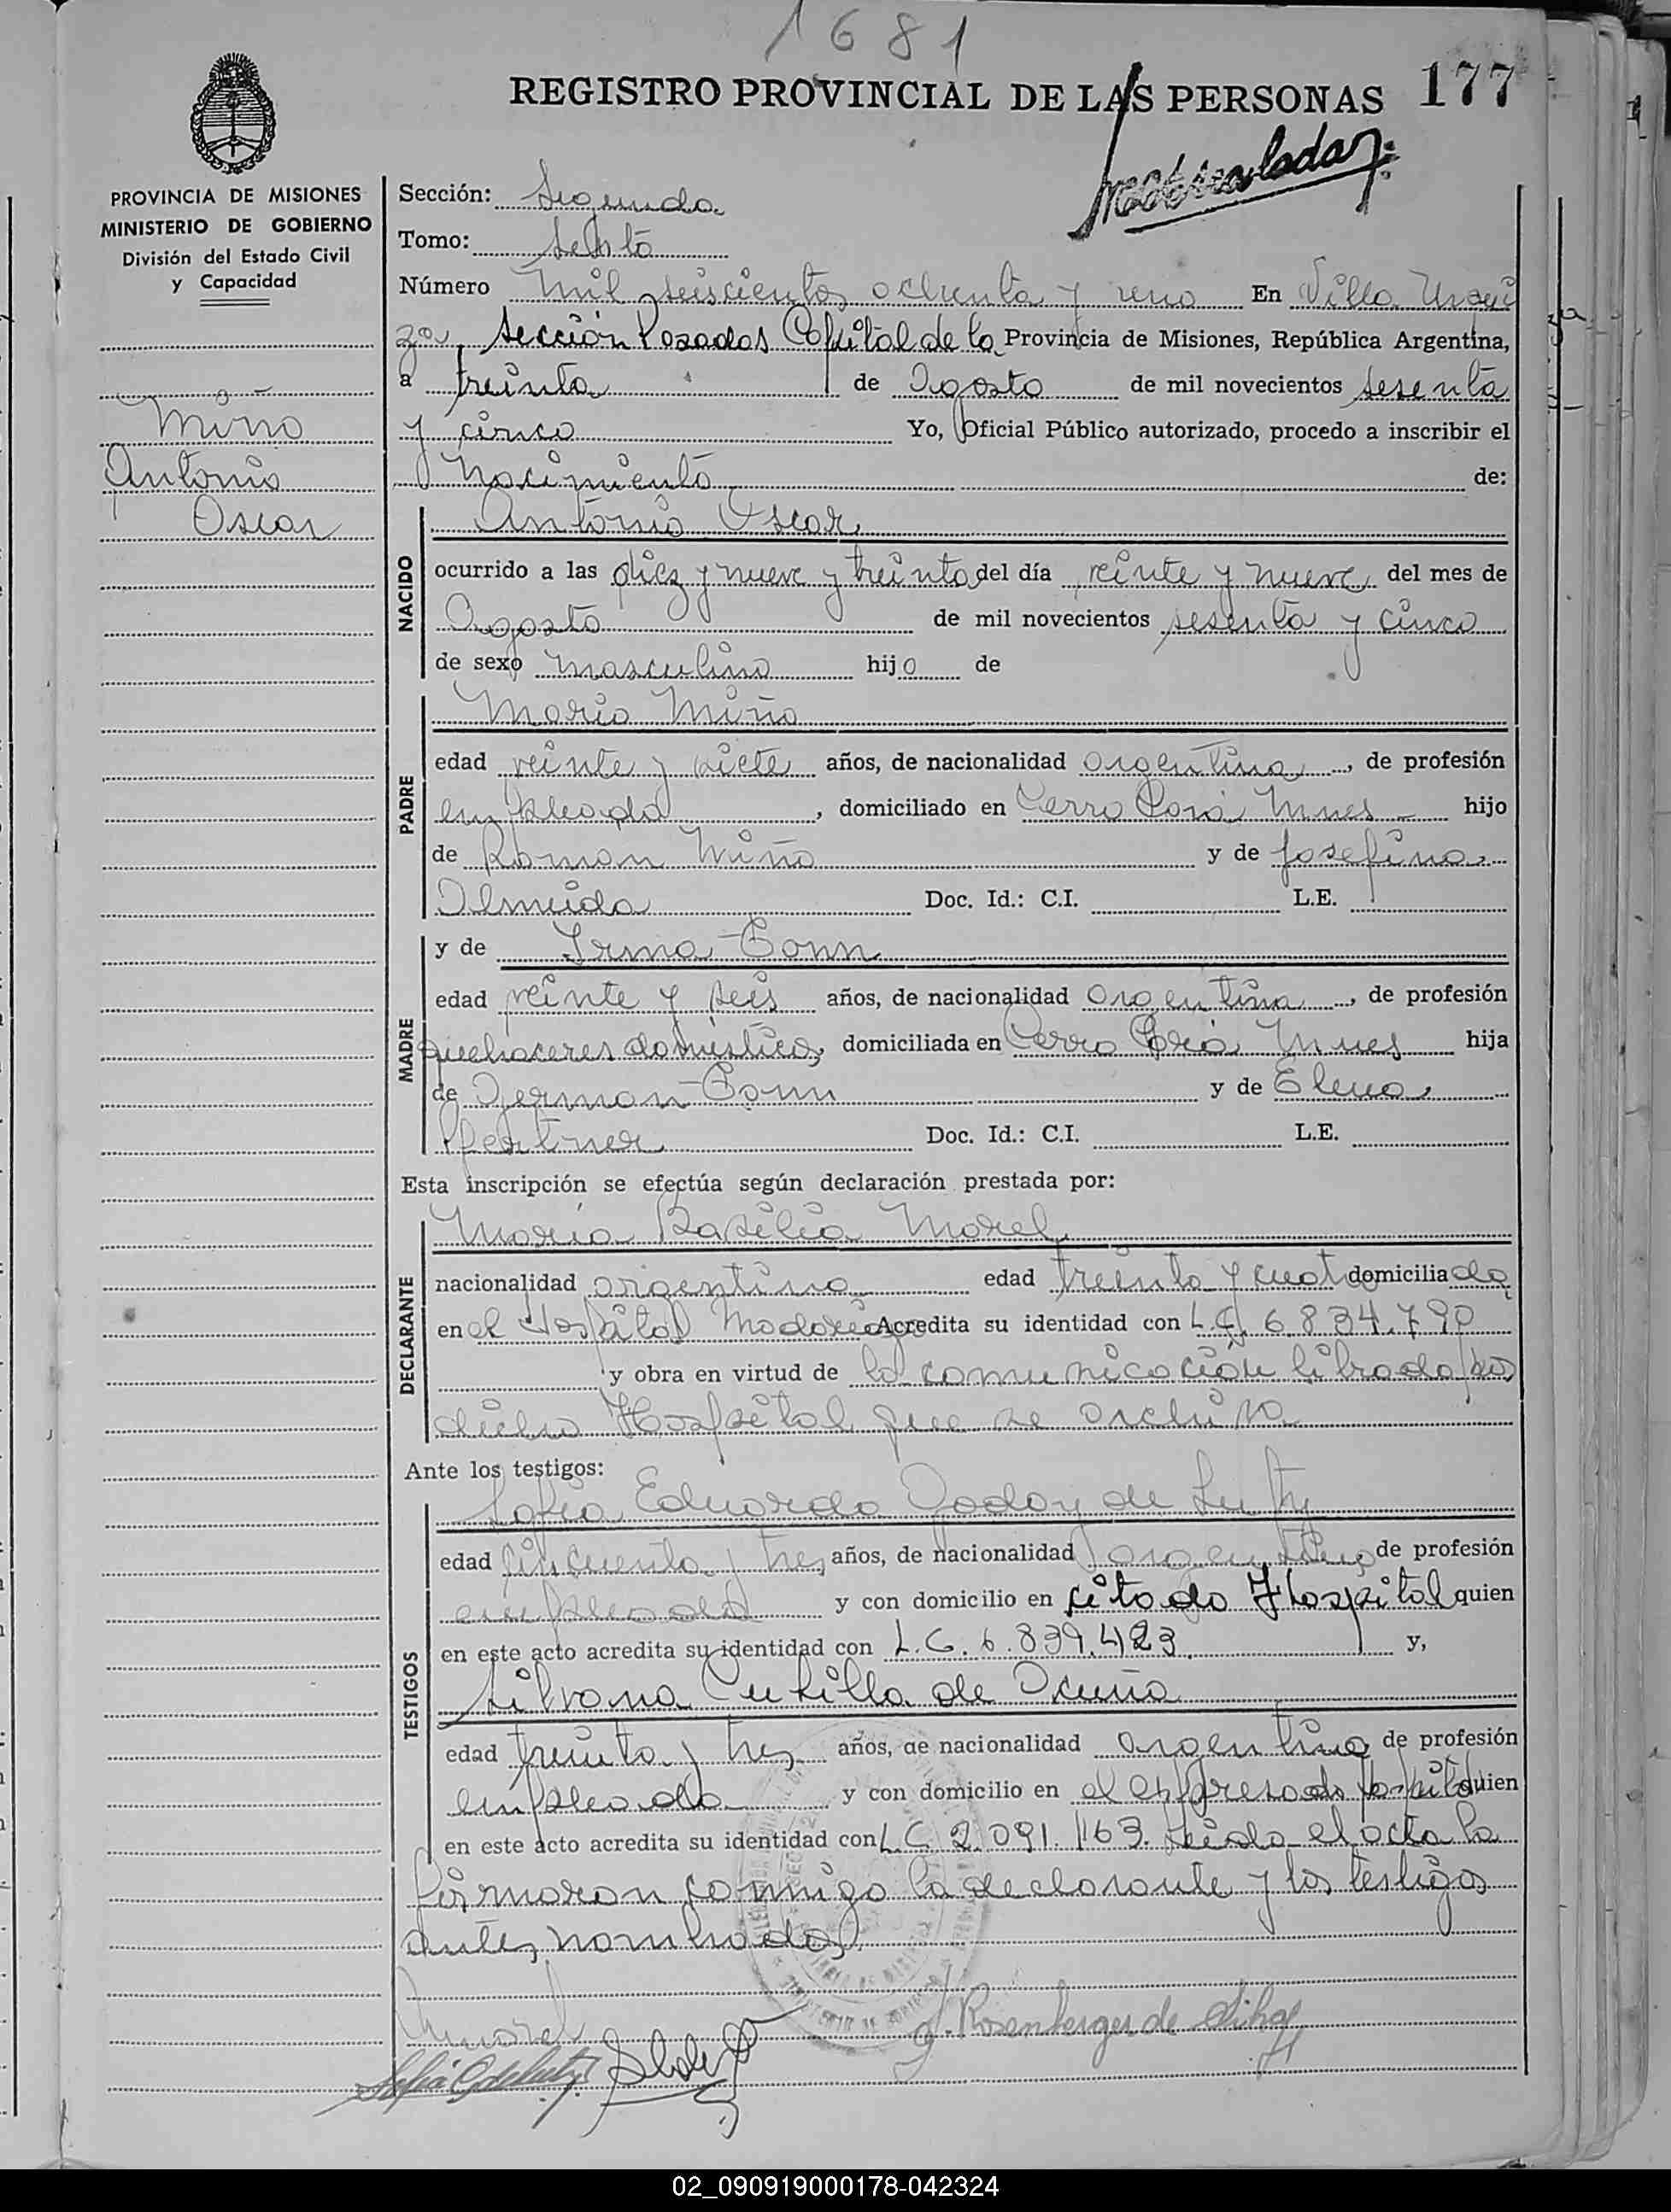 1681
REGISTRO PROVINCIAL DE LAS PERSONAS 177
PROVINCIA DE MISIONES
MINISTERIO DE GOBIERNO
División del Estado Civil
y Capacidad
Miño
Antonio
Oscar
Sección: Segunda
Tomo: Sexto
Número mil seiscientos ochenta y uno En Villa Urqui
za, Sección Posadas Capital de la Provincia de Misiones, República Argentina,
a treinta de Agosto de mil novecientos sesenta
y cinco Yo, Oficial Público autorizado, procedo a inscribir el
Nacimiento de:
NACIDO
Antonio Oscar
ocurrido a las diez y nueve y treinta del día veinte y nueve del mes de
Agosto de mil novecientos sesenta y cinco
de sexo masculino hijo de
PADRE
Mario Miño
edad veinte y siete años, de nacionalidad argentina, de profesión
empleado, domiciliado en Cerro Corá Mnes hijo
de Roman Miño y de Josefina
Almeida Doc. Id.: C.I. L.E.
MADRE
y de Irma Bonn
edad veinte y seis años, de nacionalidad argentina, de profesión
quehaceres domésticos, domiciliada en Cerro Corá Mnes hija
de German Bonn y de Elena
Doc. Id.: C.I. L.E.
Esta inscripción se efectúa según declaración prestada por:
DECLARANTE
María Basilia Morel
nacionalidad argentina edad treinta y cuatro domiciliada
en el Hospital Madariaga Acredita su identidad con L.C. 6.834.790
y obra en virtud de la comunicación librada por
dicho Hospital que se archiva
Ante los testigos:
TESTIGOS
Sofia Eduarda Godoy de
edad cincuenta y tres años, de nacionalidad argentina de profesión
empleada y con domicilio en citado Hospital quien
en este acto acredita su identidad con L.C. 6.839.423 y,
Silvana Cubilla de Acuña
edad treinta y tres años, de nacionalidad argentina de profesión
empleada y con domicilio en el expresado hospital quien
en este acto acredita su identidad con L.C. 2.091.163. Leida el acta la
firmaron conmigo la declarante y los testigos
antes nombrados
Mmorel
J. Rosenberger de
02_090919000178-042324